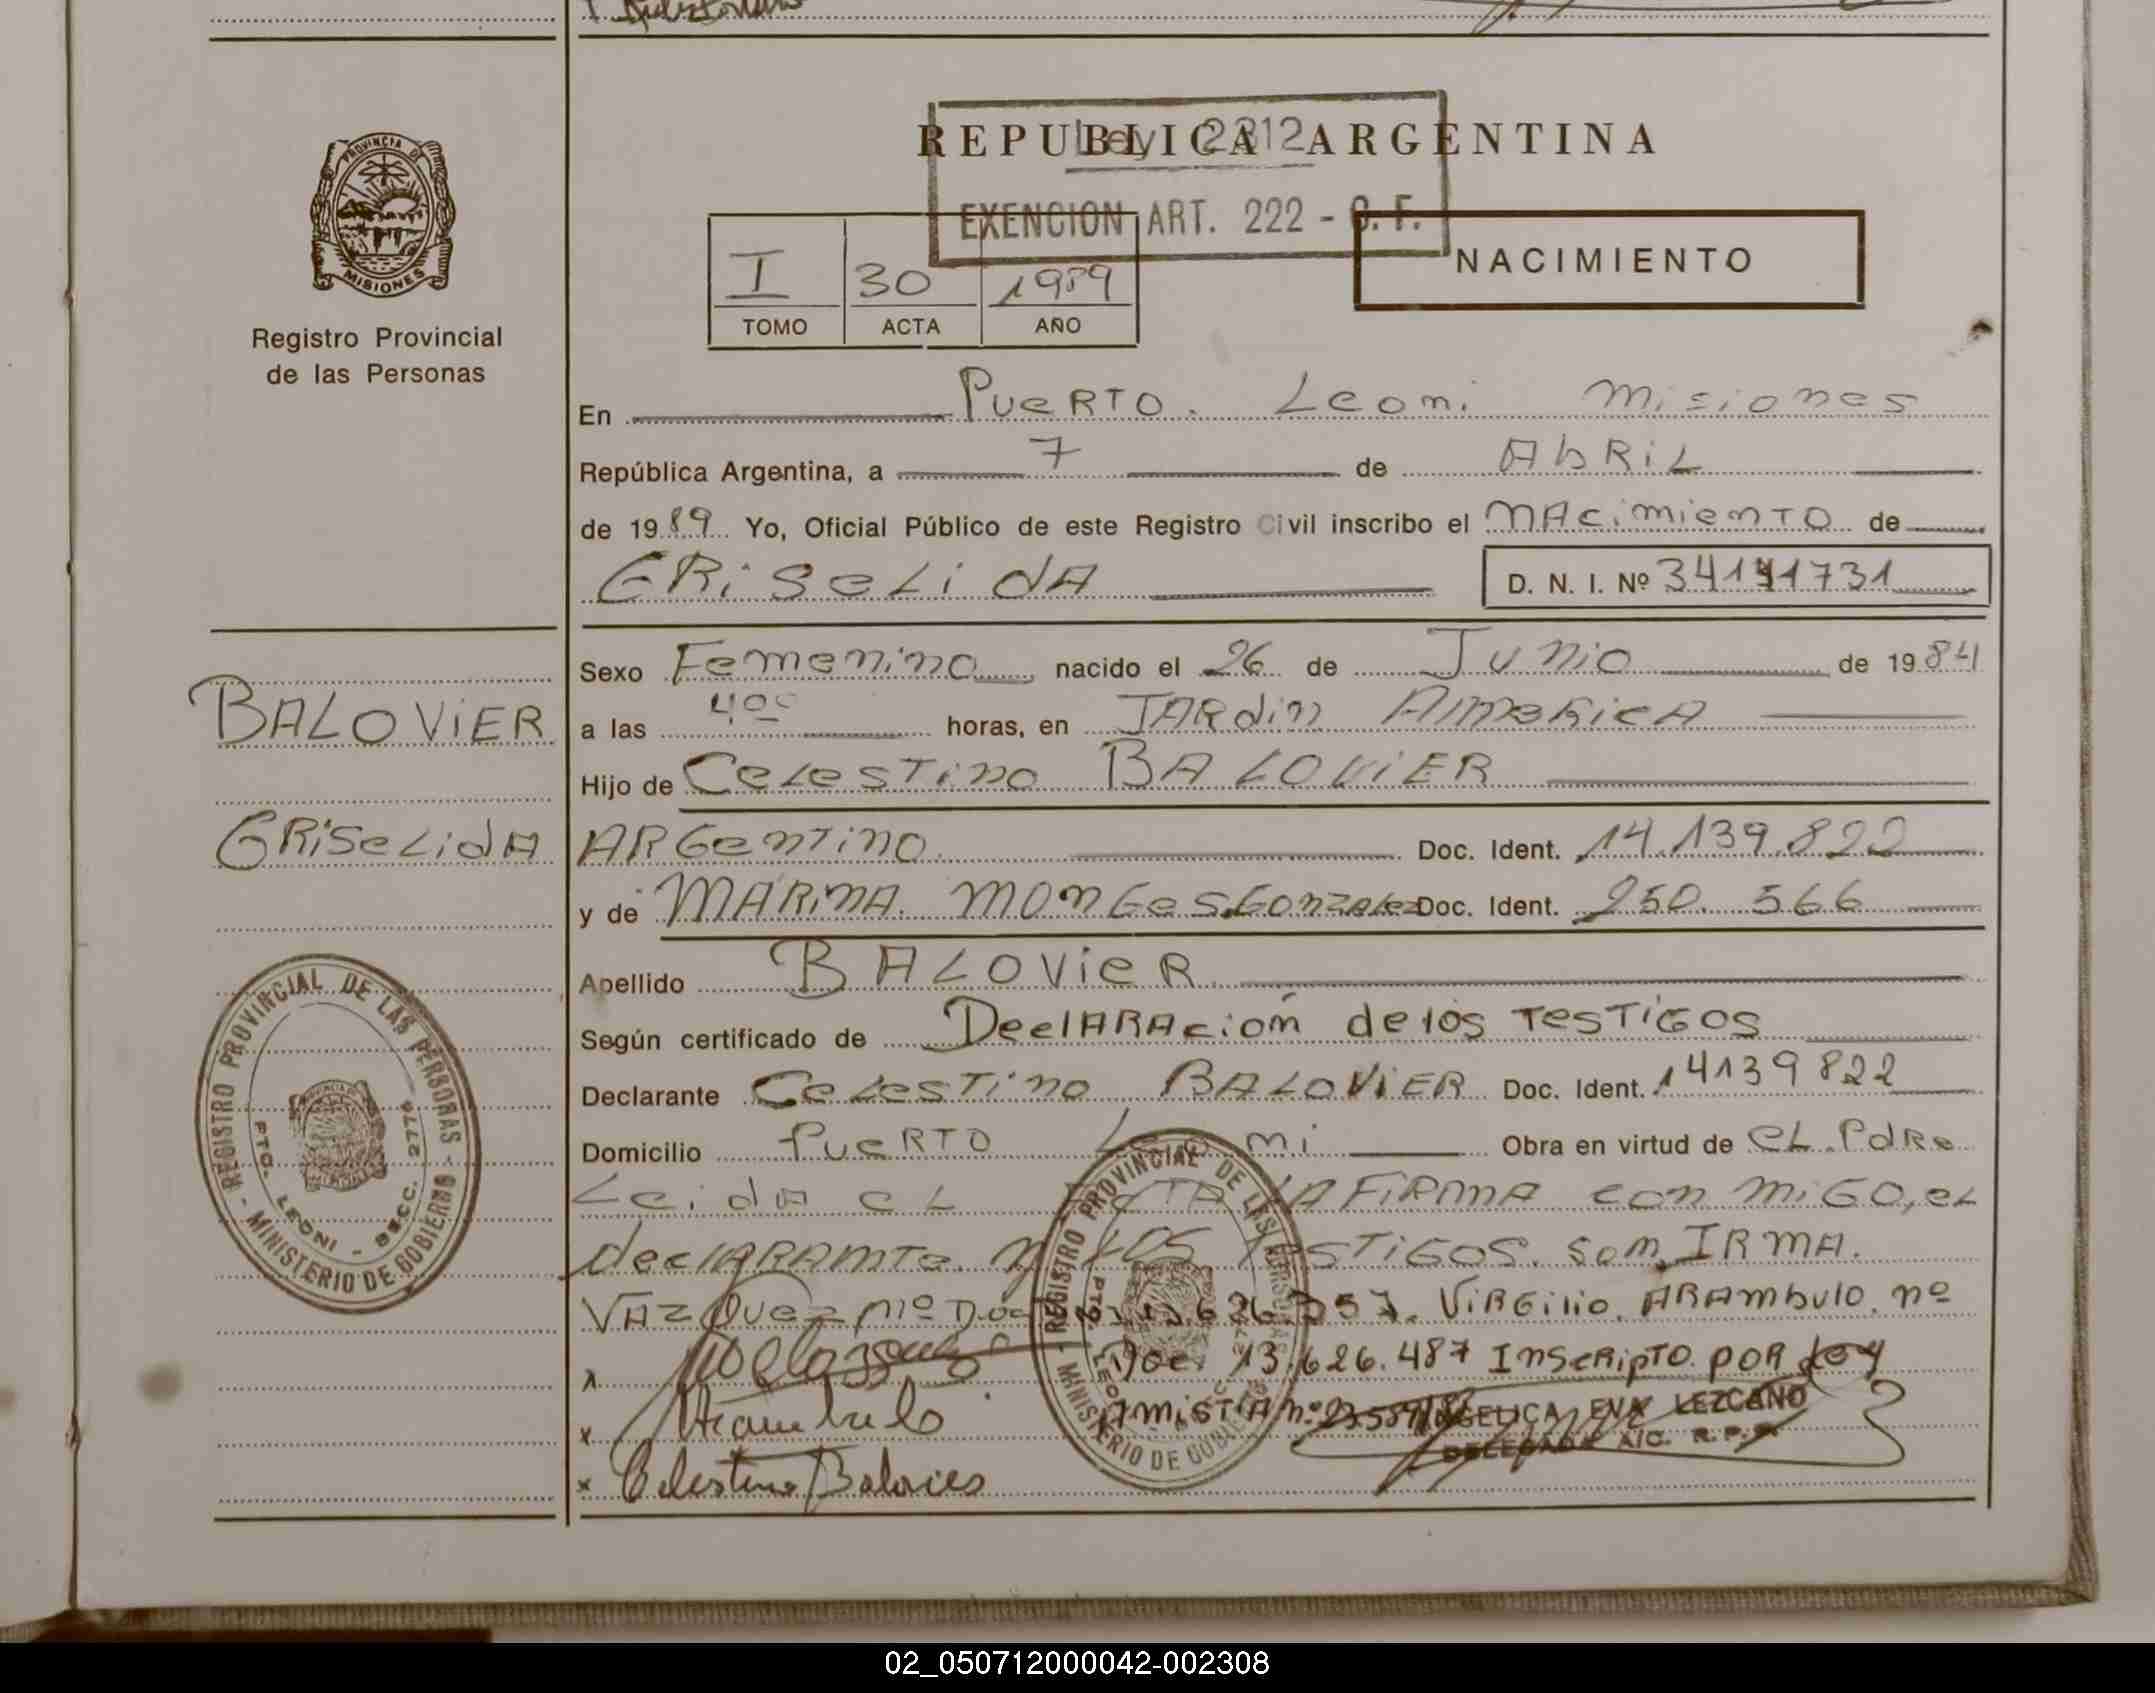 REPUBLICA ARGENTINA
Ley 2312
EXENCION ART. 222 - C. F.
NACIMIENTO
I 30 1989
TOMO ACTA AÑO
PROVINCIA DE
MISIONES
Registro Provincial
de las Personas
En Puerto Leoni Misiones
República Argentina, a 7 de Abril
de 1989 Yo, Oficial Público de este Registro Civil inscribo el NAcimiento de
GRiSeLidA
D. N. I. Nº 34141731
Sexo Femenino nacido el 26 de Junio de 1984
a las 4ºº horas, en JARdin AmeRicA
Hijo de CeLesTino BALOViER
ARGenTino Doc. Ident. 14.139.822
y de MARinA MONGes GonzaLez Doc. Ident. 250.566
Apellido BALOVieR
Según certificado de DeclARAción de los TesTiGos
Declarante CeLesTino BALOViER Doc. Ident. 14139822
Domicilio PueRTO Leoni Obra en virtud de eL PdRe
LeidA eL ActA LA FiRmA con miGo, eL
declARAnTe y LOS TesTiGOS Son IRmA
VAzQuez nº Doc 626.757. ViRGilio ARAmbulo nº
Doc. 13.626.487 InscRipTo poR Ley
AmisTiA nº
ANGELICA EVA LEZCANO
DELEGADA A/C. R.P.P.
x
x Arambulo
x Celestino Balovier
BALOViER
GRiSeLidA
REGISTRO PROVINCIAL DE LAS PERSONAS - MINISTERIO DE GOBIERNO -
PTO. LEONI - SECC. 277ª
REGISTRO PROVINCIAL DE LAS PERSONAS - MINISTERIO DE GOBIERNO
02_050712000042-002308